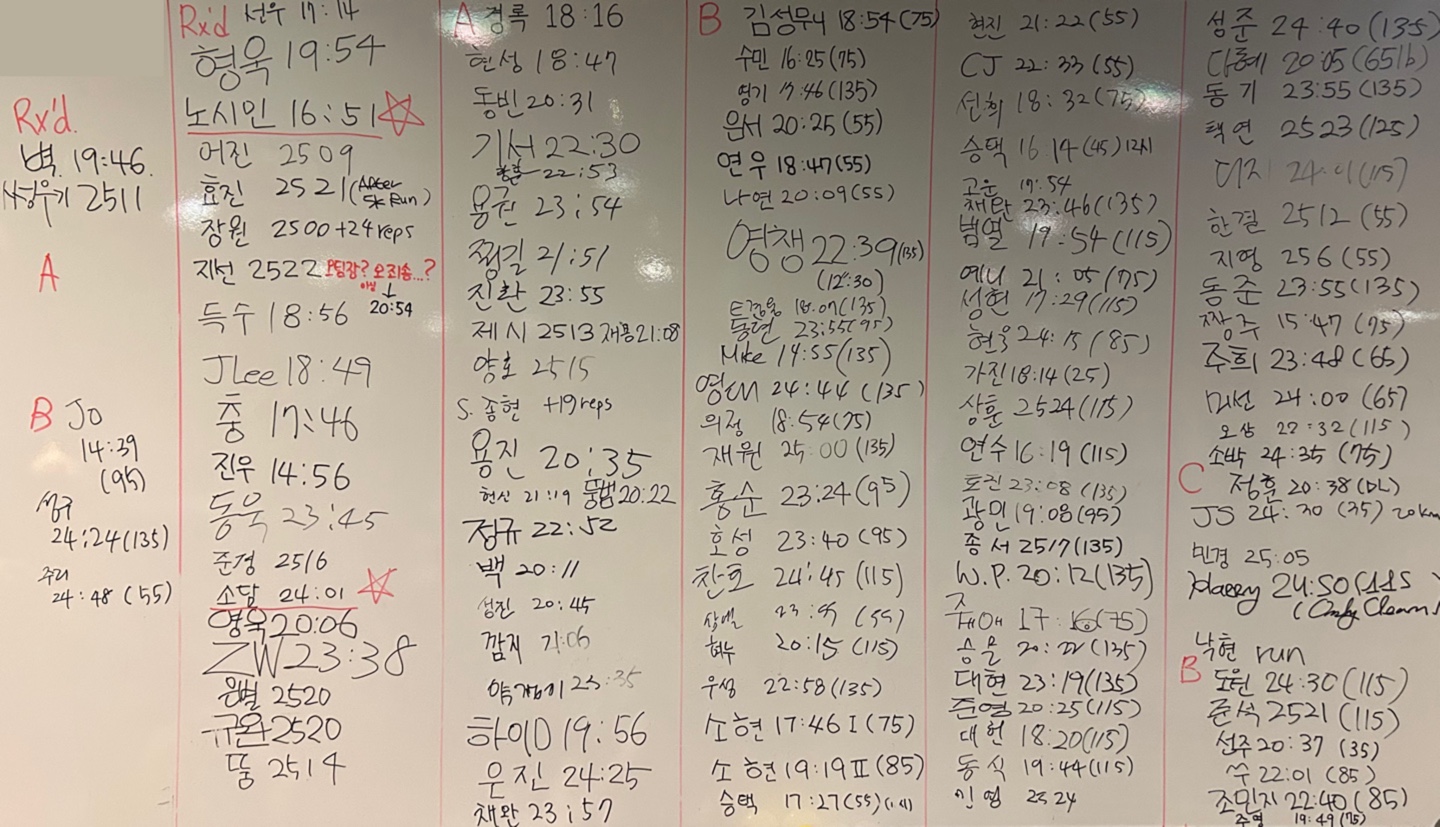 Rx'd.
벽. 19:46.
2511
A
B Jo
14:39
(95)
성구
24:24(135)
주리
24:48 (55)
Rx'd 선우 17:14
형욱 19:54
노시인 16:51
어진 2509
효진 2521(After 5K Run)
장원 2500+24reps
지선 2522 오팀장? 오죄송...?
20:54
득수 18:56
JLee 18:49
충 17:46
진우 14:56
동욱 23:45
준경 2516
소담 24:01
영욱 20:06
ZW 23:38
은별 2520
규완 2520
뚱 2514
A 경록 18:16
현성 18:47
동빈 20:31
기서 22:30
22:53
용권 23:54
찡길 21:51
진환 23:55
제시 2513 재용 21:08
양호 2515
S. 종현 +19reps
용진 20:35
현신 21:19 동범 20:22
정규 22:52
백 20:11
성진 20:45
깜지 21:06
23:35
하이D 19:56
은진 24:25
채완 23:57
B 김성무니 18:54(75)
수민 16:25(75)
영기 17:46(135)
은서 20:25(55)
연우 18:47(55)
나연 20:09(55)
영챙 22:39(135)
(12:30)
18:07(135)
23:55(95)
Mike 14:55(135)
24:44 (135)
의정 18:54(75)
재원 25:00(135)
홍순 23:24(95)
호성 23:40(95)
찬호 24:45(115)
(55)
현누 20:15(115)
우성 22:58(135)
소현 17:46 I (75)
소현 19:19 II (85)
승택 17:27(55)
현진 21:22(55)
CJ 22:33(55)
선희 18:32(75)
승택 16:14(45)12시
고운 17:54
채란 23:46(135)
범열 19:54(115)
예니 21:05(75)
성현 17:29(115)
현우 24:15(85)
가진 18:14(25)
상훈 2524(115)
연수 16:19(115)
표진 23:08(135)
광민 19:08(95)
종서 2517(135)
W.P. 20:12(135)
17:16(75)
승율 20:22(135)
대현 23:19(135)
준영 20:25(115)
대헌 18:20(115)
동식 19:44(115)
민영 2524
성준 24:40(135)
다혜 20:05(65lb)
동기 23:55(135)
택연 2523(125)
24:01(115)
한결 2512(55)
지영 256(55)
동준 23:55(135)
짱주 15:47(75)
주희 23:48(65)
미선 24:00(65)
오상 22:32(115)
소박 24:35(75)
C 정훈 20:38(DL)
JS 24:30(35) 20km
민경 25:05
Harry 24:50(115)
(Only Clean)
낙현 run
B 도원 24:30(115)
준석 2521(115)
선주 20:37(35)
쑤 22:01(85)
조민지 22:40(85)
주영 19:49(75)